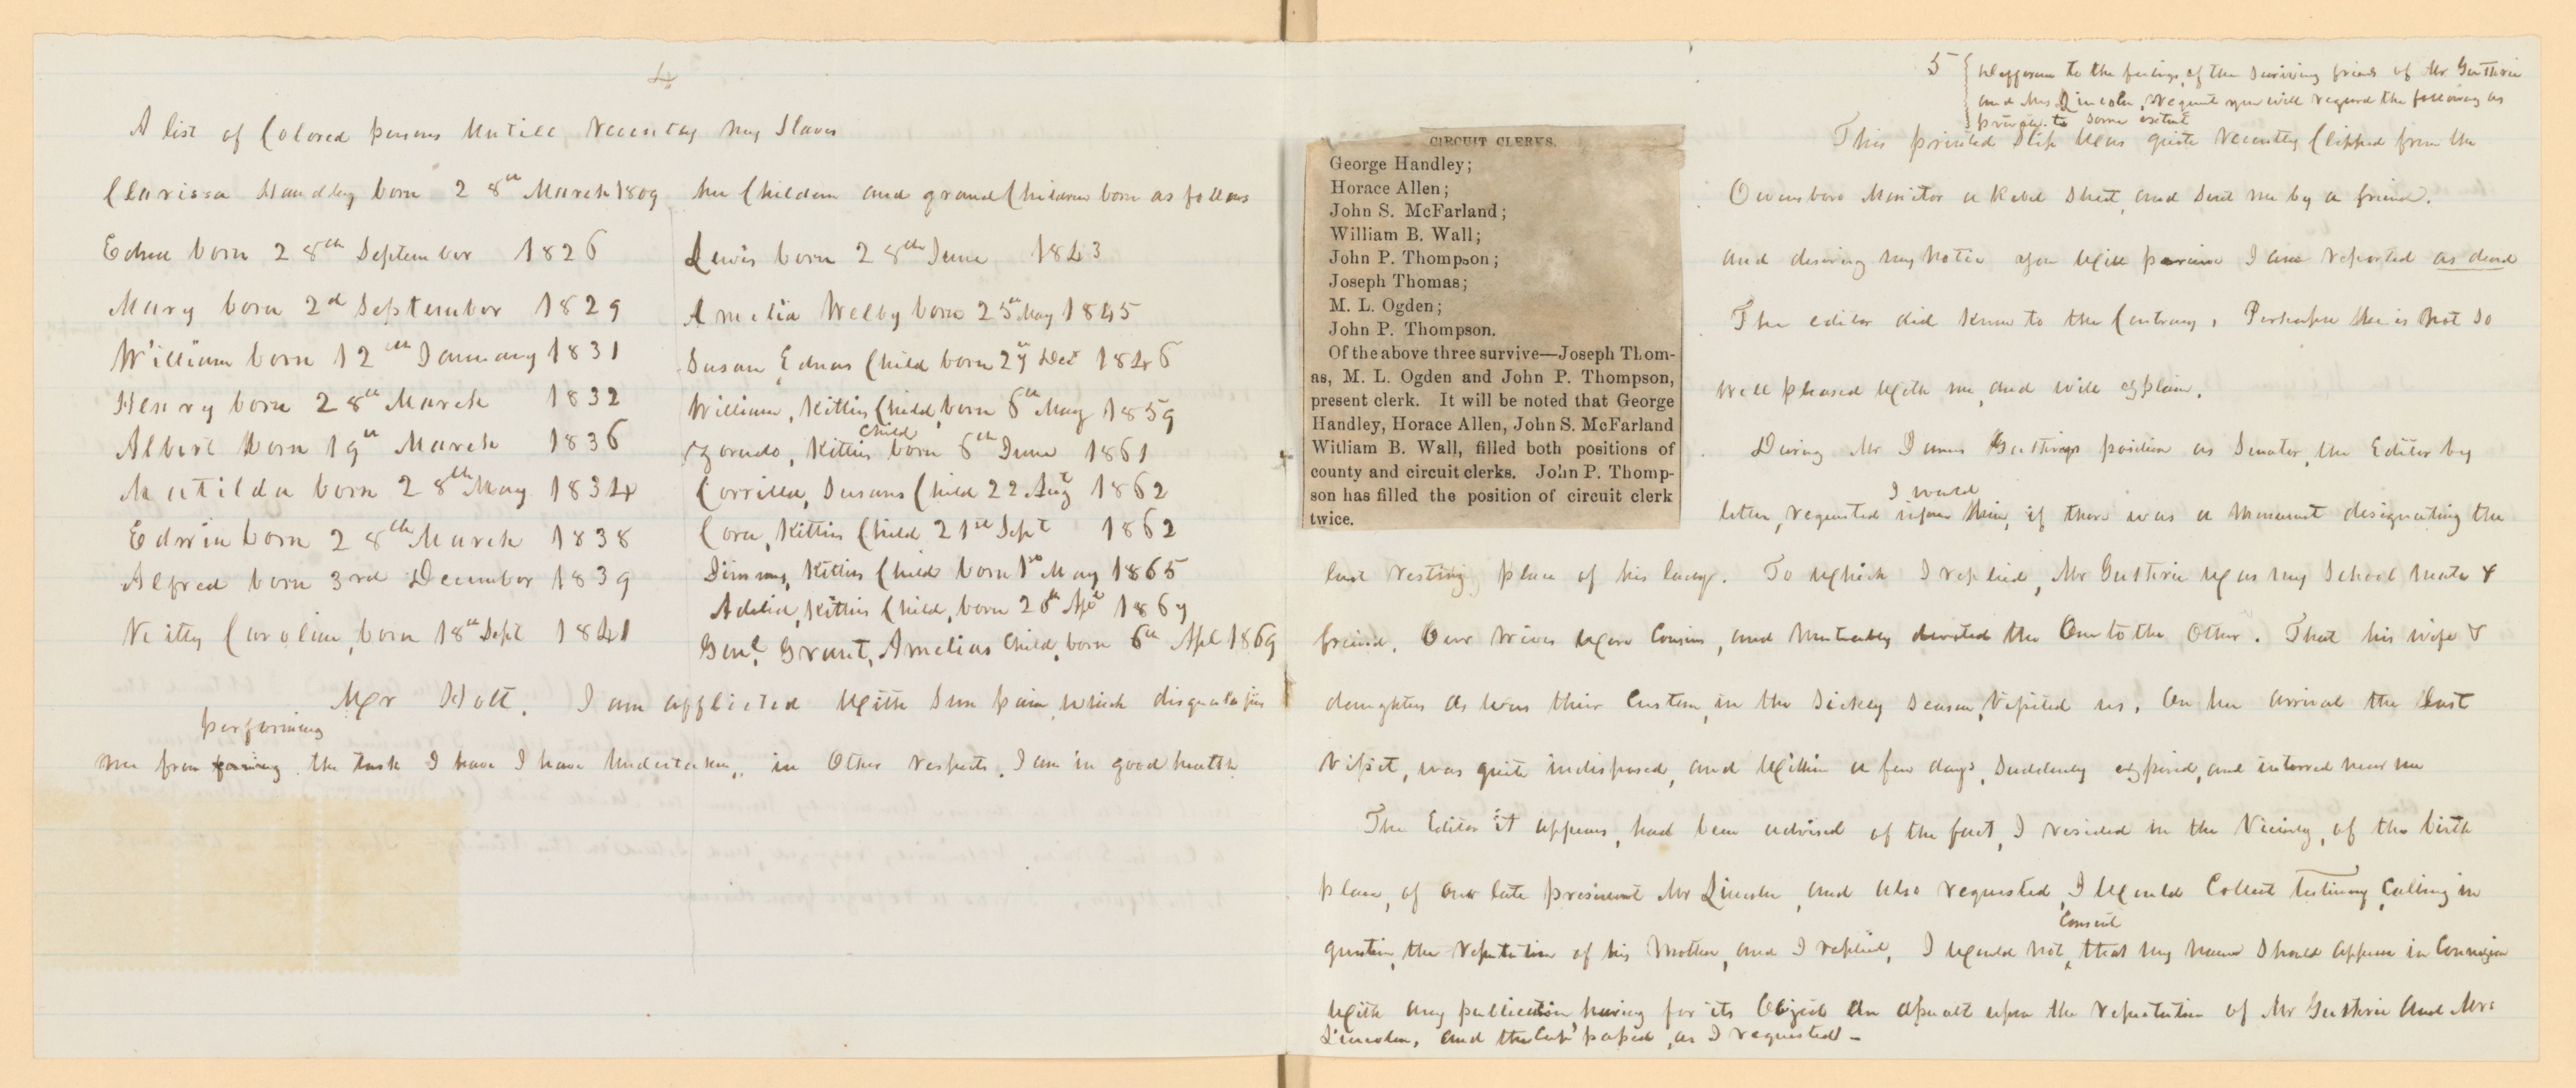 4
A list of Colored persons Untill, recently my Slaves
Clarissa Handley born 28th March 1809 her Children and grand Children born as follows
Edna born 28th September 1826
Mary born 2d September 1829
William born 12th January 1831
Henry born 28th March 1832
Albert born 19th March 1836
Matilda born 28th May 1834
Edwin born 28th March 1838
Alfred born 3rd December 1839
Caroline, born 18th Sept 1841
Lewis born 28th June 1843
Amelia Welby born 25th May 1845
Susan, Ednas Child born 27th Dec 1846
William, Kitties Child, born 6th May 1859
Kitties Child born 6th June 1861
Corrilla, Susans Child 22 Aug 1862
Cora, Kitties Child 21st Sept 1862
Kitties Child born 1st May 1865
Adelia, Kitties Child, born 20th Apl 1867
Genl. Grant, Amelias Child, born 6th Apl 1869
Mr Holt. I am afflicted with Sun pain, which disqualifies
performing
me from the task I have I have Undertaken, in Other respects, I am in good health
5 { to the feelings, of the Surviving friends of Mr Guthrie
and Mrs Lincoln, request you will regard the following as
private to Some extent
This printed Slip was quite recently Clipped from the
Owensboro Monitor a Rebel Sheet, and Sent me by a friend.
and desiring my notice you will perceive I am reported as dead
The editor did know to the Contrary, Perhaps he is not So
well pleased with me, and will explain.
During Mr James Guthries position as Senator, the Editor by
I would
letter, requested inform him, if there was a Monument designating the
last resting place of his lady. To which I replied, Mr Guthrie was my School mate &
friend. Our Wives were Cousins, and Mutually devoted the One to the Other. That his wife &
daughters as was their Custom, in the Sickly Season, Visited us. On her arrival the last
Visit, was quite indisposed, and within a few days, Suddenly expired, and interred near me
The Editor it appears, had been advised of the fact, I resided in the Vicinity, of the birth
place, of our late president Mr Lincoln, and also requested, I would Collect Testimony, Calling in
Consent
question, the reputation of his Mother, and I replied, I would not, that my name Should appear in Connexion
with any publication, having for its Object An assault upon the reputation of Mr Guthrie And Mrs
Lincoln, and the as I requested -
CIRCUIT CLERKS.
George Handley;
Horace Allen;
John S. McFarland;
William B. Wall;
John P. Thompson;
Joseph Thomas;
M. L. Ogden;
John P. Thompson.
Of the above three survive—Joseph Thom-
as, M. L. Ogden and John P. Thompson,
present clerk. It will be noted that George
Handley, Horace Allen, John S. McFarland
William B. Wall, filled both positions of
county and circuit clerks. John P. Thomp-
son has filled the position of circuit clerk
twice.